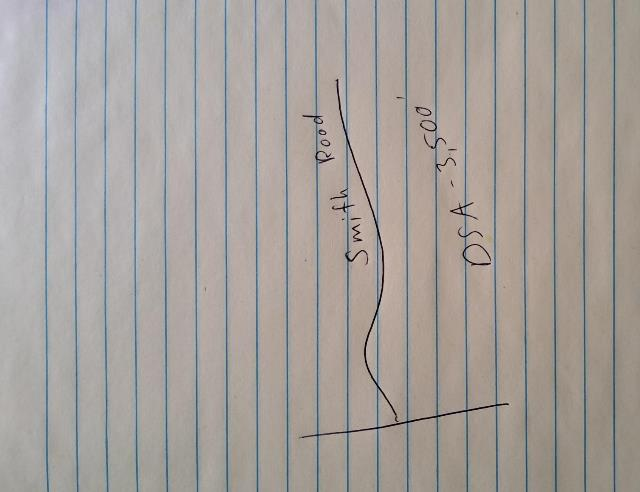 Smith Road
DSA - 3,500'